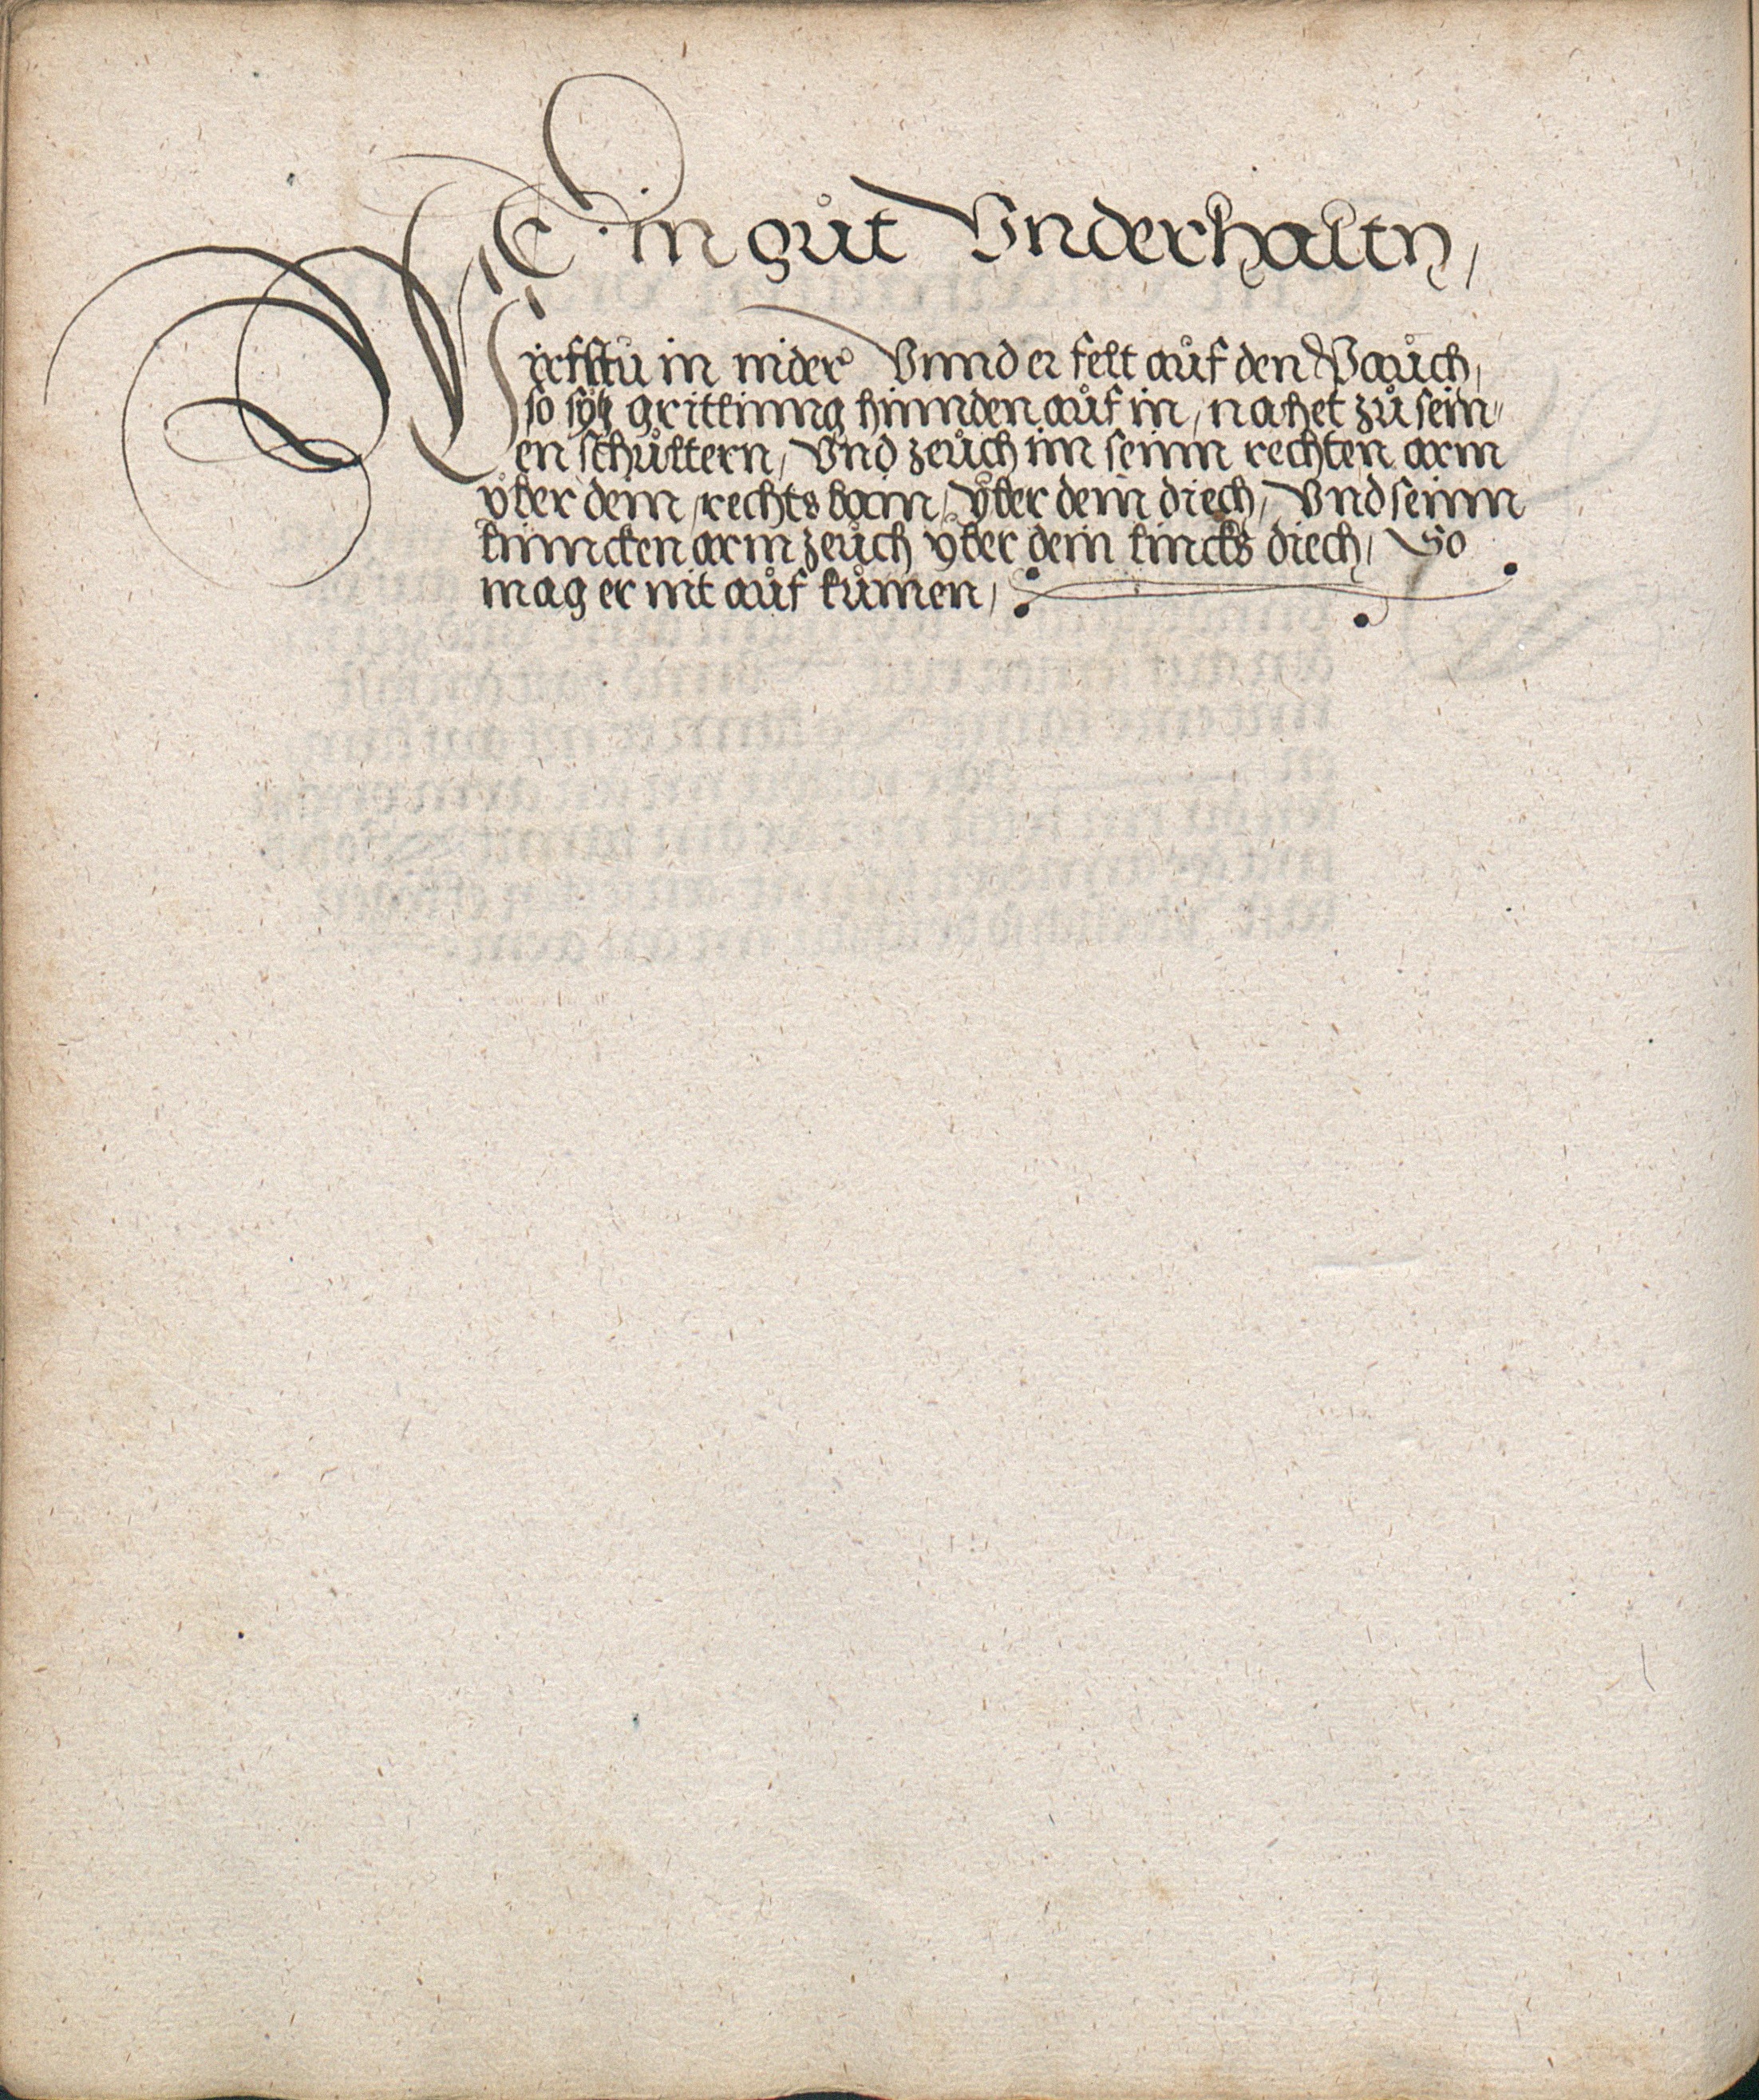 Ein gůt Vnderhaltn,
Wirfstů in nider Vnnd er felt aůf den Baůch,
so sytz grittlinng hinnden aůf in, nahet zů sein„
en schůltern, Vnd zeůch im seinn rechten arm
yber dein rechts bain, yber dein diech, Vnd seinn
linncken arm zeůch yber dein lincks diech, So
mag er nit aůf kůmen,